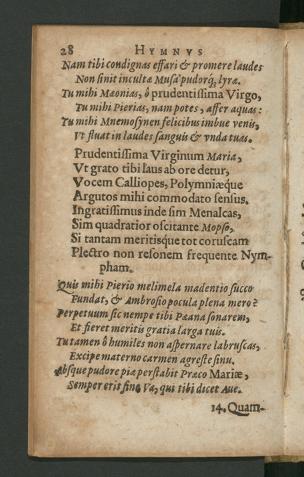 28 HYMNVS
Nam tibi condignas effari & promere laudes
Non sinit incultæ Musa' pudorq, lyræ.
Tu mihi Mæonias, ô prudentissima Virgo,
Tu mihi Pierias, nam potes, affer aquas:
Tu mihi Mnemosÿnen felicibus imbue venis,
Vt fluat in laudes sanguis & vnda tuas.
Prudentissima Virginum Maria,
Vt grato tibi laus ab ore detur,
Vocem Calliopes, Polymniæque
Argutos mihi commodato sensus.
Ingratissimus inde sim Menalcas,
Sim quadratior oscitante Mopso,
Si tantam meritisque tot coruscam
Plectro non resonem frequente Nym-
pham.
Quis mihi Pierio melimela madentio succo
Fundat, & Ambrosio pocula plena mero?
Perpetuum sic nempe tibi Pæana sonarem,
Et fieret meritis gratia larga tuis.
Tu tamen ô humiles non aspernare labruscas,
Excipe materno carmen agreste sinu.
Absque pudore piæ perstabit Præco Mariæ,
Semper erit sine Væ, qui tibi dicet Aue.
14. Quam-